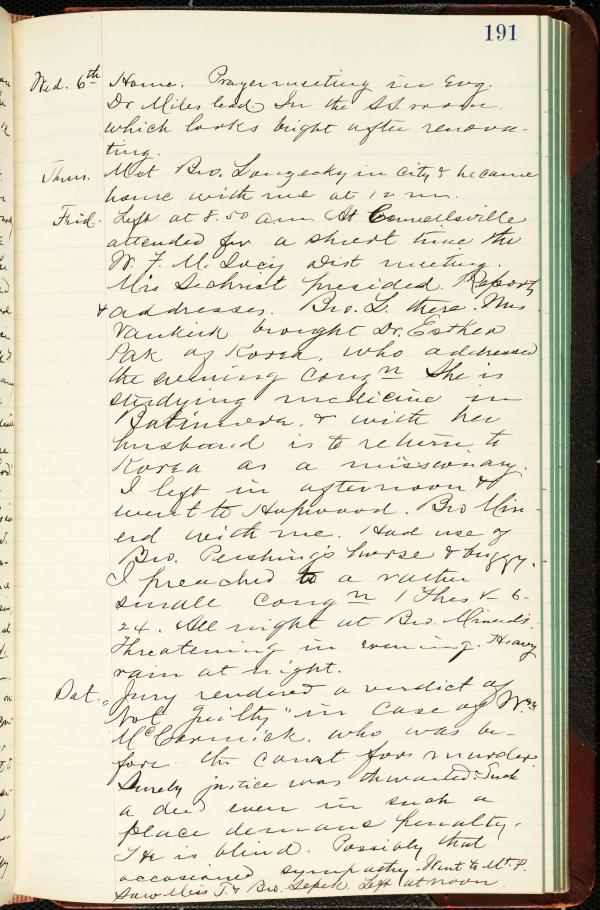 191
Wed. 6th Home. Prayermeeting in Evg.
Dr Miles lead. In the SS room
which looks bright after renova-
ting.
Thurs. Met Bro. in city & he came
home with me at 12 m.
Frid. Left at 8.50 a.m. At Connellsville
attended for a short time the
W. F. M. Socy Dist meeting.
Mrs Sechrist presided. Reports
& addresses. Bro. L. there. Mrs
Vankirk brought Dr. Esther
Pak of Korea, who addressed
the evening congn She is
studying medicine in
Batimora. & with her
husband is to return to
Korea as a missionary.
I left in afternoon &
went to Hopwood. Bro Min-
erd with me. Had use of
Bro. Pershing's horse & buggy.
I preached to a rather
small congn 1 Thes 5-
24. All night at Bro. Minerd's.
Threatening in evening. Heavy
rain at night.
Sat. "Jury rendered a verdict of
Not Guilty" in case of Wm
McCormick. who was be-
fore the court for murder.
Surely justice was thwarted. Such
a deed even in such a
place demans penalty.
He is blind. Possibly that
occasioned sympathy. Went to Mt. P.
Saw Miss T. & Bro. Left at noon.